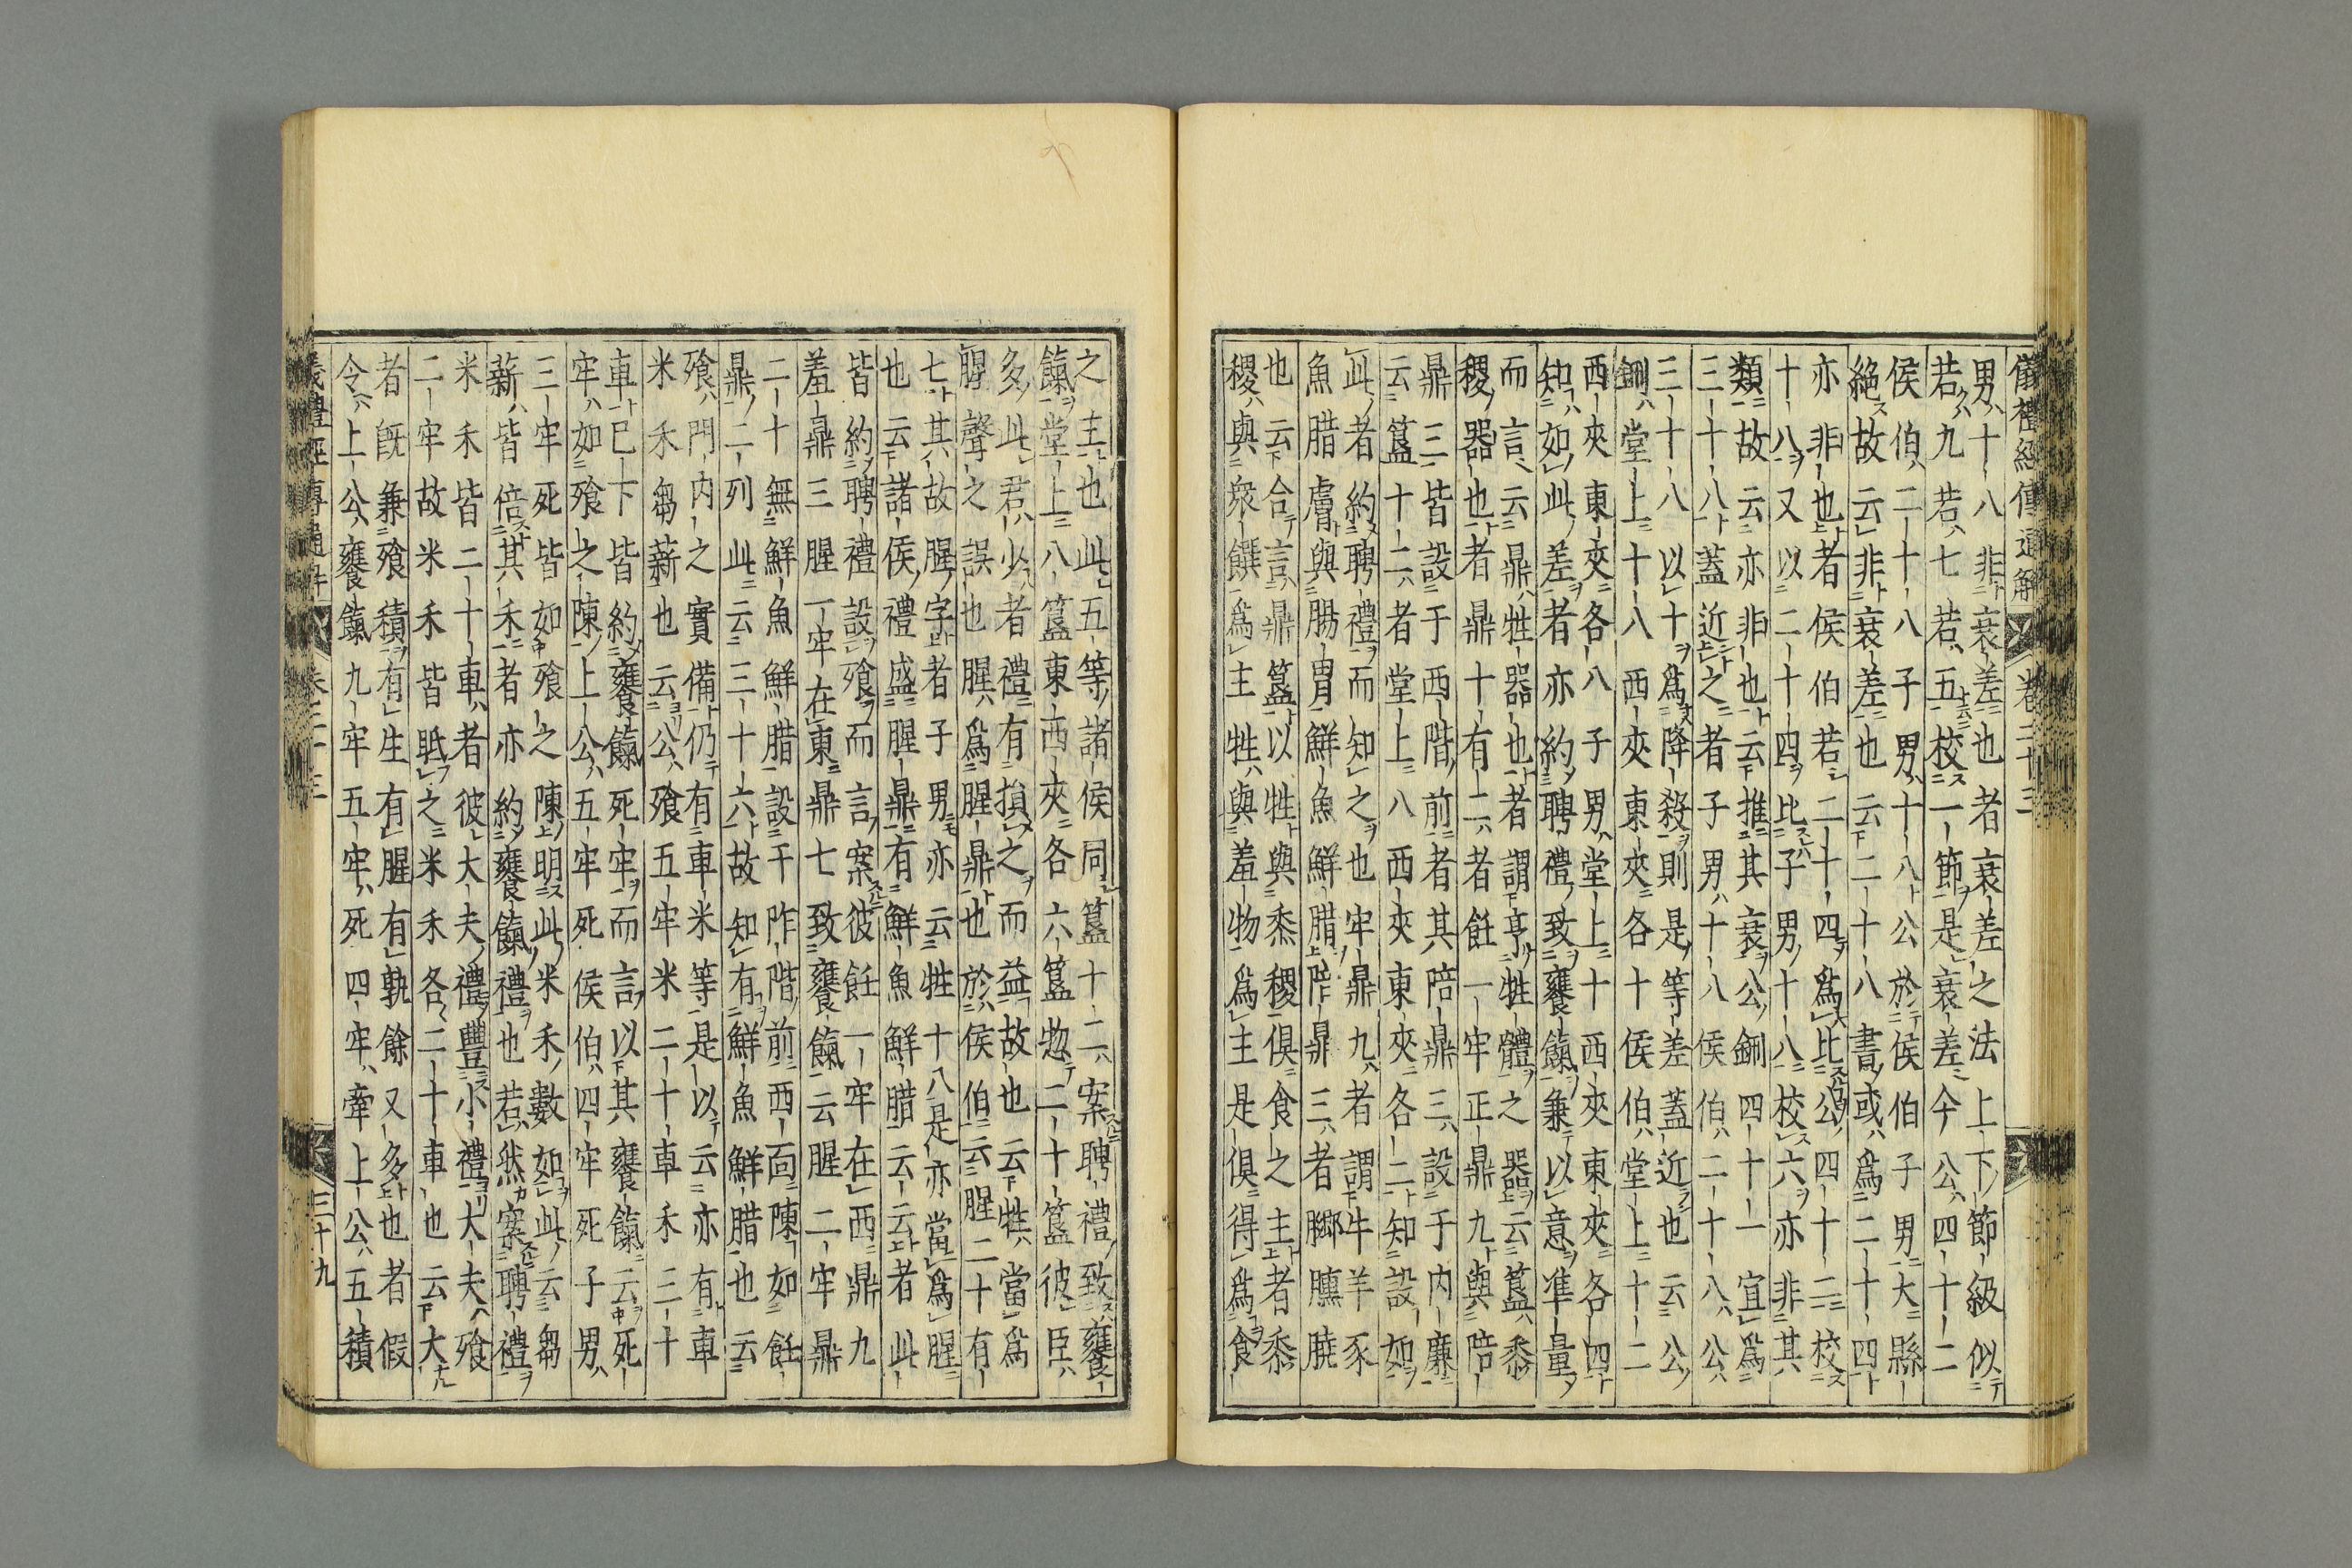 儀禮經傳通解 卷二十三
男十八非衰差也者衰差之法上下節級似
若九若七若五校一節是衰差今公四十二
侯伯二十八子男十八公於侯伯子男大縣
絶故云非衰差也云二十八書或爲二十四
亦非也者侯伯若二十四爲比公四十二校
十八又以二十四比子男十八校六亦非其
類故云亦非也云推其衰公鉶四十一宜爲
三十八蓋近之者子男十八侯伯二十八公
三十八以十爲降殺則是等差蓋近也云公
鉶堂上十八西夾東夾各十侯伯堂上十二
西夾東夾各八子男堂上十西夾東夾各四
知如此差者亦約聘禮致饔餼兼以意準量
而言云鼎牲器也者謂亨牲體之器云簋黍
稷器也者鼎十有二者飪一牢正鼎九與陪
鼎三皆設于西階前者其陪鼎三設于内廉
云簋十二者堂上八西夾東夾各二知設如
此者約聘禮而知之也牢鼎九者謂牛羊豕
魚腊膚與腸胃鮮魚鮮腊陪鼎三者膷臐膮
也云合言鼎簋以牲與黍稷俱食之主者黍
稷與衆饌爲主牲與羞物爲主是俱得爲食
之主也此五等諸侯同簋十二案聘禮致饔
餼堂上八簋東西夾各六簋揔二十簋彼臣
多此君少者禮有損之而益故也云牲當爲
腥聲之誤也腥爲腥鼎也於侯伯云腥二十有
七其故腥字者子男亦云牲十八是亦當爲腥
也云諸侯禮盛腥鼎有鮮魚鮮腊云云者此
皆約聘禮設飧而言案彼飪一牢在西鼎九
羞鼎三腥一牢在東鼎七致饔餼云腥二牢鼎
二十無鮮魚鮮腊設于阼階前西面陳如飪
鼎二列此云三十六故知有鮮魚鮮腊也云
飧門内之實備仍有車米等是以云亦有車
米禾芻薪也云公飧五牢米二十車禾三十
車已下皆約饔餼死牢而言以其饔餼云死
牢如飧之陳上公五牢死侯伯四牢死子男
三牢死皆如飧之陳明此米禾數如此云芻
薪皆倍其禾者亦約饔餼禮也若然案聘禮
米禾皆二十車者彼大夫禮豐小禮大夫飧
二牢故米禾皆眡之米禾各二十車也云大
者旣兼飧積有生有腥有孰餘又多也者假
令上公饔餼九牢五牢死四牢牽上公五積
儀禮經傳通解 卷二十三 三十九